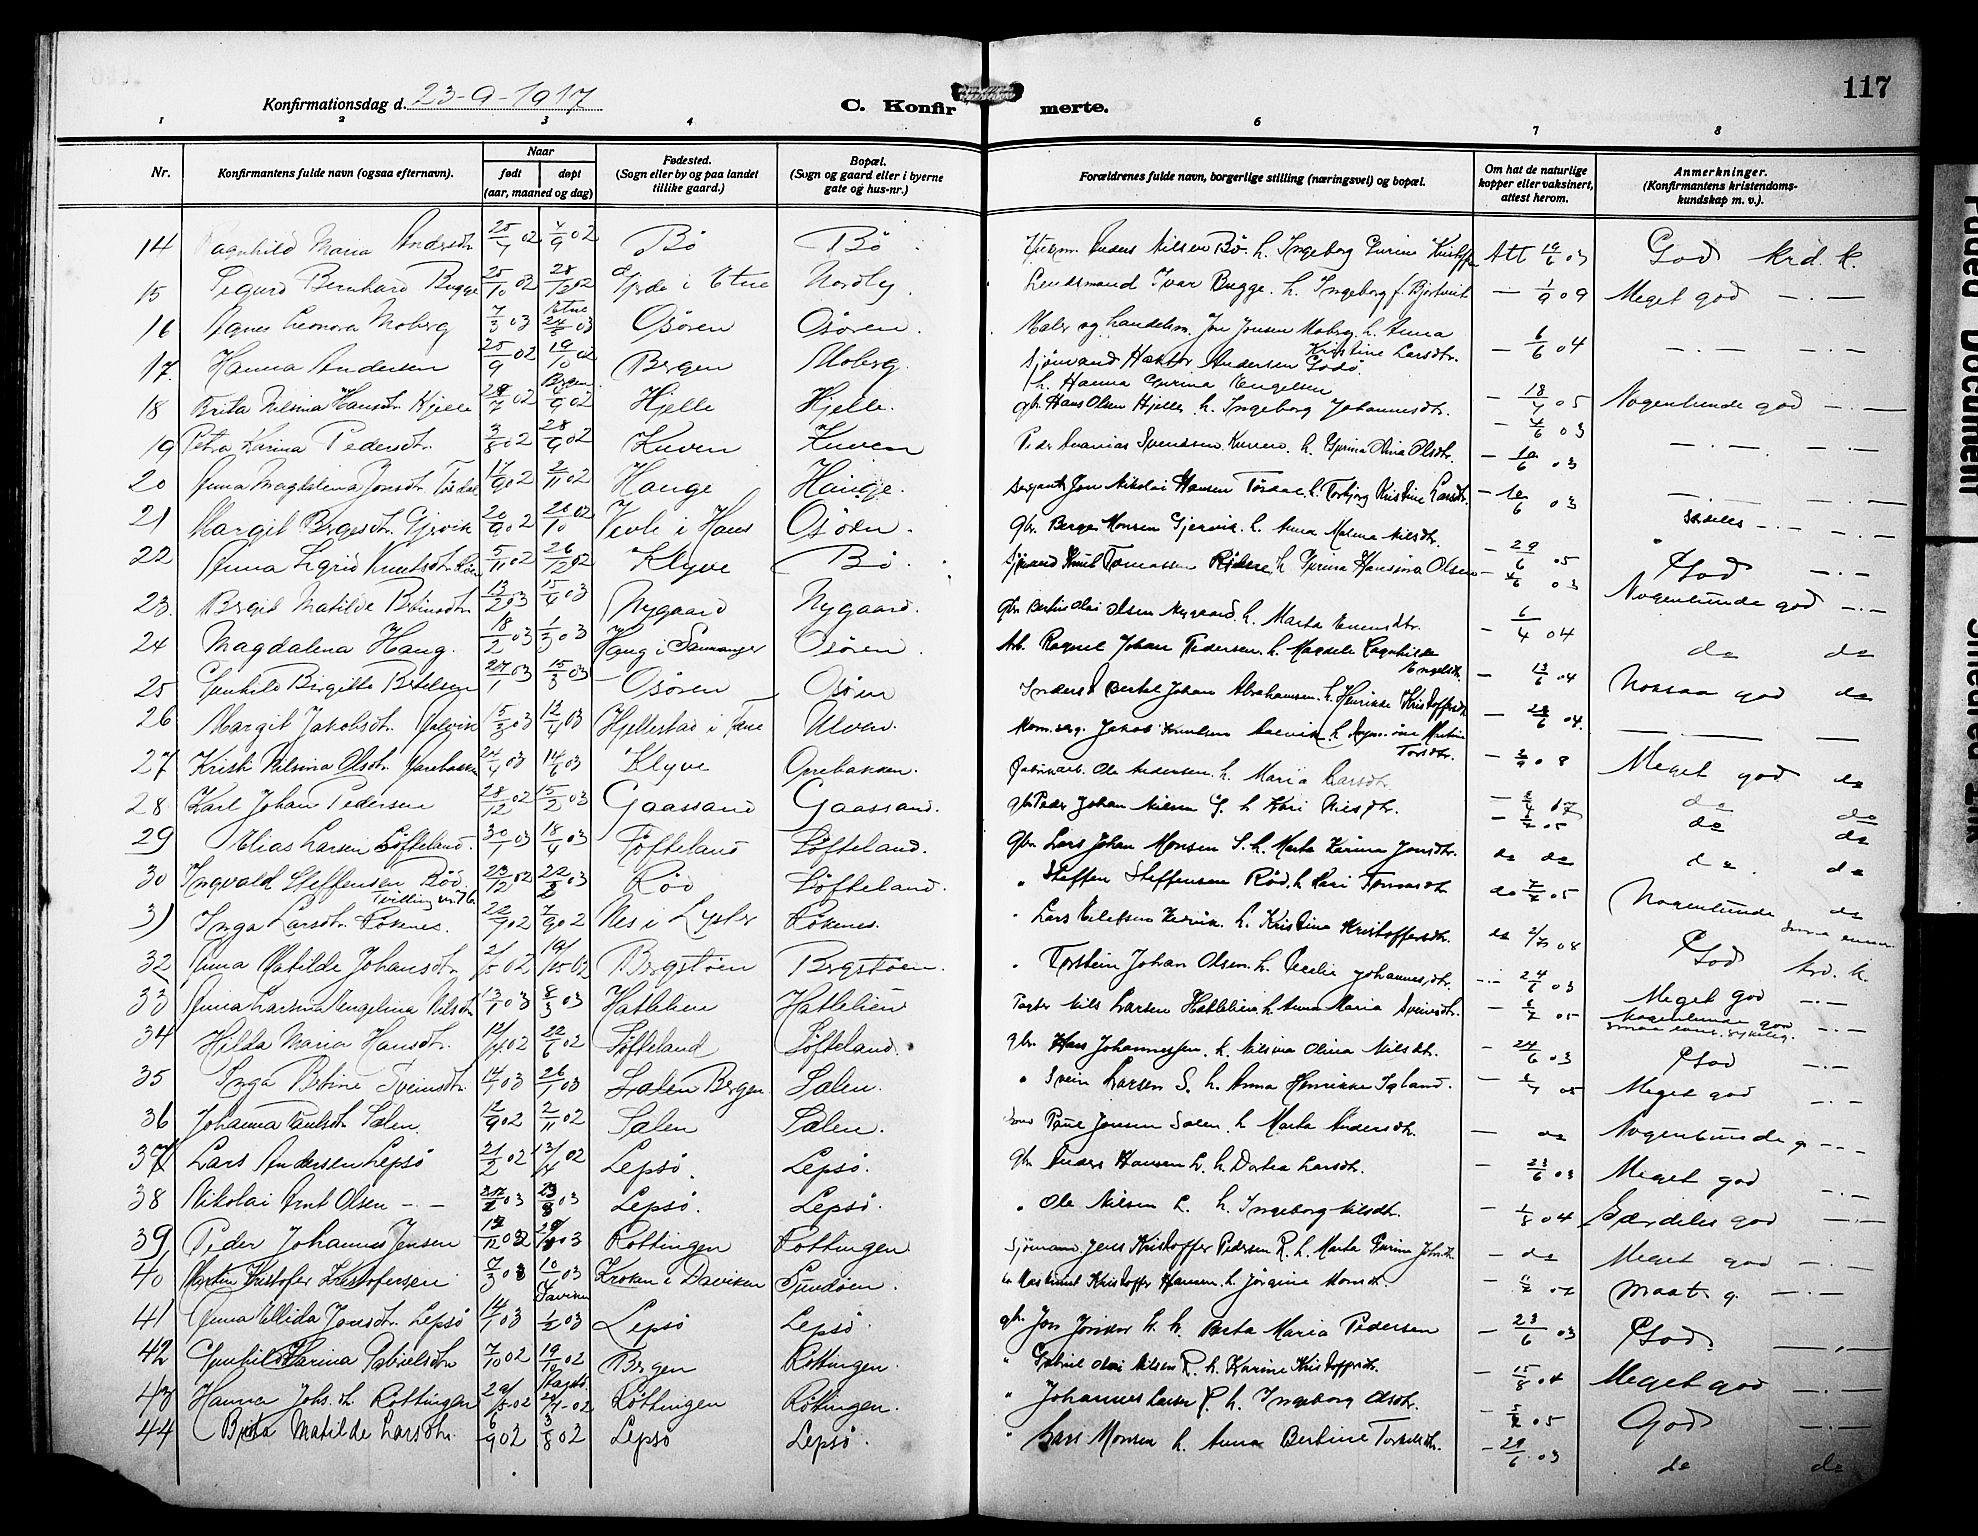 117
Konfirmationsdag d. 23-9-1917
C. Konfirmerte.
1 2 3 4 5 6 7 8
Nr.
Konfirmantens fulde navn (ogsaa efternavn).
Naar
født døpt
(aar, maaned og dag)
Fødested.
(Sogn eller by og paa landet
tillike gaard.)
Bopæl.
(Sogn og gaard eller i byerne
gate og hus-nr.)
Forældrenes fulde navn, borgerlige stilling (næringsvei) og bopæl.
Om hat de naturlige
kopper eller vaksinert,
attest herom.
Anmerkninger.
(Konfirmantens kristendoms-
kundskap m. v.).
14 Ragnhild Maria Andersdtr 25/7 02 7/9 02 Bø Bø Anders Nilsen Bø. h. Ingeborg Gurine Att 19/6 03 God krd. k.
15 Sigurd Bernhard Bugge 25/10 02 28/12 02 i Etne Nordby Lendsmand Ivar Bugge. h. Ingeborg f. Bjortveit — 1/9 09 Meget god — . —
16 Agnes Leonora Moberg 7/3 03 Etne 24/5 03 Osøren Osøren. Maler og handelsm. Jon Jonsen Moberg h. Anna Kristine Larsdtr. — 6/6 04 — . — — . —
17. Hanna Andersen 25/9 02 19/10 02 Bergen Bergen Moberg. Sjømand Andersen Godø h. Hanna Gurina Engelsen — 18/4 05 Nogenlunde god — . —
18 Brita Nilsina Hansdtr. Hjelle 29/7 02 9 02 Hjelle Hjelle. gbr. Hans Olsen Hjelle. h. Ingeborg Johannesdtr. — 4/6 03 — . — — . —
19 Petra Karina Pedersdtr. 3/8 02 28/9 02 Kuven Kuven Peder Ananias Svendsen Kuven h. Gurina Olina Olsdtr. — 10/6 03
20 Anna Magdalena Jonsdtr. Tøsdal 17/9 02 2/11 02 Hauge Hauge. Sergant Jon Nikolai Hansen Tøsdal. h. Torbjørg Kristine Larsdtr. — 10/6 03 — . — — . —
21 Margit Bergesdtr. Gjervik 20/9 02 26/10 02 i Haus Osøren. gbr. Berge Monsen Gjervik. h. Anna Malena Nilsdtr. — 29/6 05 — . —
22 Anna Sigrid Knutsdtr. 5/11 02 26/12 02 Klyve Bø. Sjømand Knut Tomassen h Gurina Hansina Olsen — 4/6 03 God — . —
23. Bergit Matilde Bertinsdtr 13/2 03 15/4 03 Nygaard Nygaard. gbr. Bertin Olai Olsen Nygaard. h. Marta Enensdtr. — 6/4 04 Nogenlunde god — . —
24 Magdalena Haug. 18/2 03 1/3 03 Haug i Samnanger Osøren. Arb. Ragnal Johan Pedersen. h. Magdela Ragnhilda Engelsdtr. — 13/6 04 do do
25 Gunhild Birgitte Bertelsen 27/1 03 15/3 03 Osøren Osøren Inders Bertel Johan Abrahamsen. h. Henrikke Kristoffersdtr — 28/6 04. Nossaa god do
26 Margit Jakobsdtr. 15/3 03 12/4 03 Hjellestad i Fane Ulven. Jakob Knudsen h. Martine Torsdtr. — 2/9 08 — — —
27 Kristi Nilsina Olsdtr. 24/4 03 14/6 03 Klyve Fabrikarb. Ole Andersen. h. Maria Larsdtr Meget god do
28 Karl Johan Pedersen 28/12 02 15/2 03 Gaassand Gaassand. gbr Peder Johan Nilsen G. h Kari Nilsdtr. do do
29 Elias Larsen Søfteland. 30/1 03 18/4 03 Søfteland Søfteland. Gbr. Lars Johan Monsen S. h. Marta Karina Jonsdtr. do do do do
30 Ingvald Steffensen Rød 23/12 02 22/2 03 Rød Søfteland. " Steffen Steffensen Rød. h Kari Tomasdtr do 7/7 05 do. do
31 Inga Larsdtr. Røkenes. 22/7 02 7/9 02 Nes i Lyster Røkenes. " Lars h. Kristina Kristoffersdtr. do 2/7 04 Nogenlunde do
32 Anna Matilde Johansdtr 2/5 02 19/10 02 Bergstøen Bergstøen. " Torstein Johan Olsen. h. Cecilie Johannesdtr. — 24/6 03 God krd. k.
33 Anna Larsina Engelina Nilsdtr 13/1 03 8/3 03 Hatlelien Hatlelien Nils Larsen Hatlelien h. Anna Maria Sveinsdtr. — 05 Meget god — . —
34 Hilda Maria Hansdtr. 12/4 02 22/6 02 Søfteland Søfteland. gbr. Hans Johannessen. h. Nilsina Olina Nilsdtr. — 24/6 03 Nogenlunde god — . —
35 Inga Bertine Sveinsdtr 03 26/1 03 Salen Bergen Salen. " Svein Larsen S. h. Anna Henrikke Igland. — 05 God — . —
36 Johanna Paulsdtr. Salen. 12/9 02 2/11 02 Salen Salen. Paul Jonsen Salen. h. Marta Andersdtr. — do Meget god — . —
37 Lars Andersen Lepsø 21/2 02 13/4 02 Lepsø. Lepsø. gbr. Anders Hansen L. h. Dortea Larsdtr. — 23/6 03 Nogenlunde g. — —
38 Nikolai Arnt Olsen — — 03 03 Lepsø. Lepsø. " Ole Nilsen L. h. Ingeborg Nilsdtr. — 1/8 04 Meget god — . —
39 Peder Johannes Jensen 12/12 02 03 Røttingen Røttingen Sjømann Jens Kristoffer Pedersen R. h. Marta Gurina — do Særdeles god — . —
40 Martin Kristofer Kristofersen 7/3 03 10/ 03 Daviken Kroken i Daviken Sundøen. Kristoffer Hansen h. Jørgine Monsdtr. Meget god — . —
41 Anna Ellida Jonsdtr. Lepsø 14/1 03 1/2 03 Lepsø Lepsø. gbr. Jon Jonsen L. h. Berta Maria Pedersen — 23/6 03 Maat. g. — . —
42 Gunhild Karina Gabrielsdtr 7/10 02 19/10 02 Bergen Røttingen. " Gabriel Olai Nilsen R. h. Karine Kristoffersdtr. — 15/8 04 God. — . —
43 Hanna Johs.dtr. Røttingen 02 02 Røttingen Røttingen. " Johannes Larsen R. h. Ingeborg Olsdtr. — 05 Meget god — . —
44 Berta Matilde Larsdtr. 6/9 02 3/8 02 Lepsø Lepsø. " Lars Monsen h. Anna Bertine Torkelsdtr. — 29/6 03 God — . —
do do
Faded Document
Smeared Ink